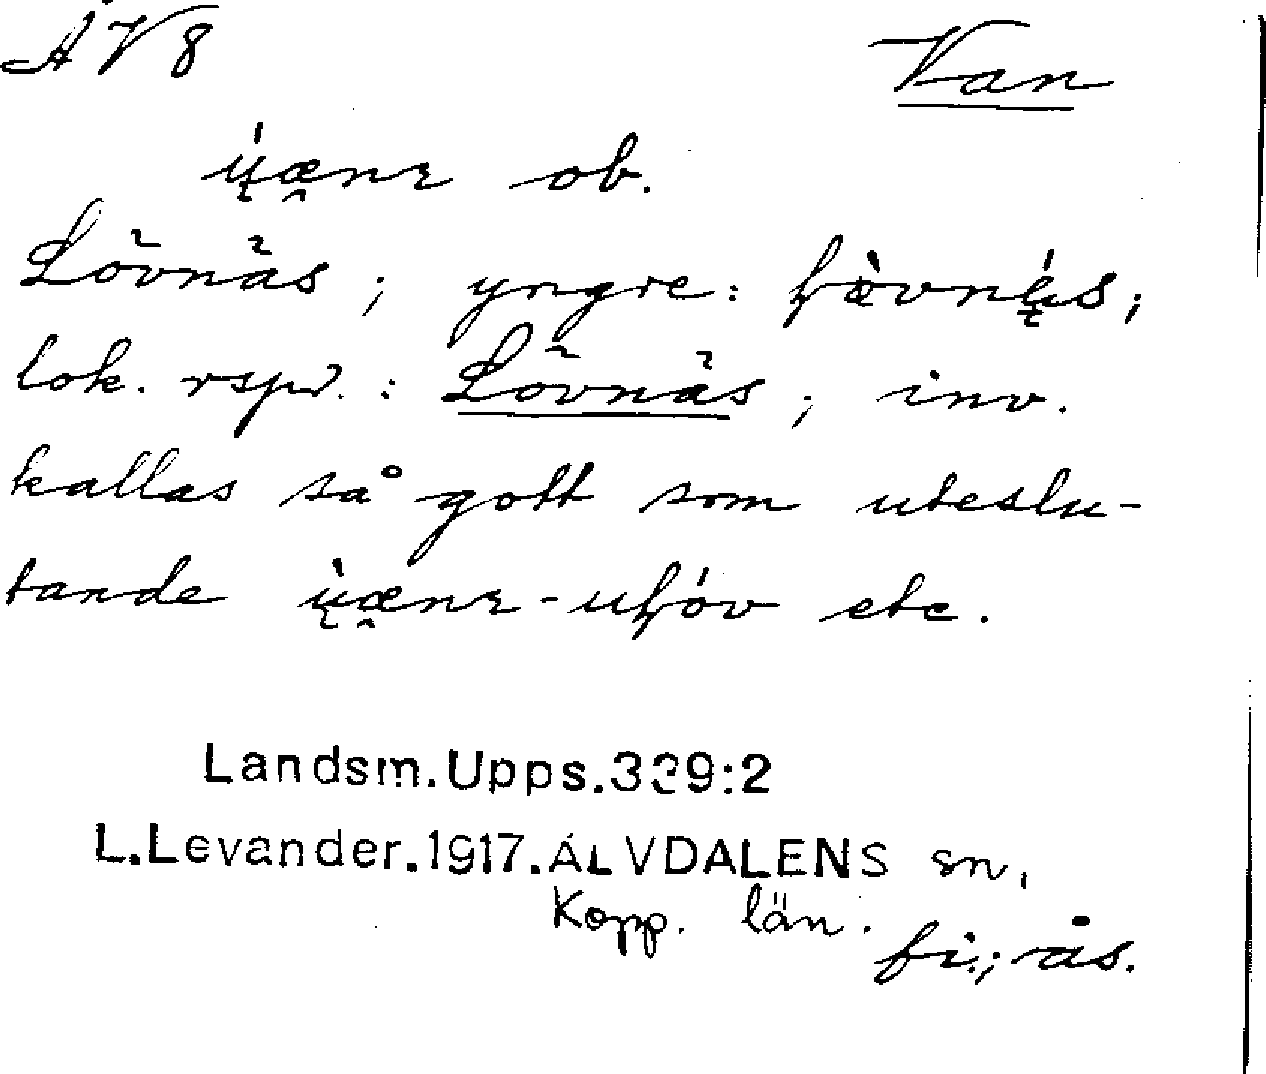 ÄV8 Van
ob.
Lövnäs; yngre:
lok. rspr.: Lövnäs; inv.
kallas så gott som uteslu-
tande etc.
Landsm.Upps.339:2
L.Levander.1917.ÄLVDALENS sn.
Kopp. län.
fi.; ås.